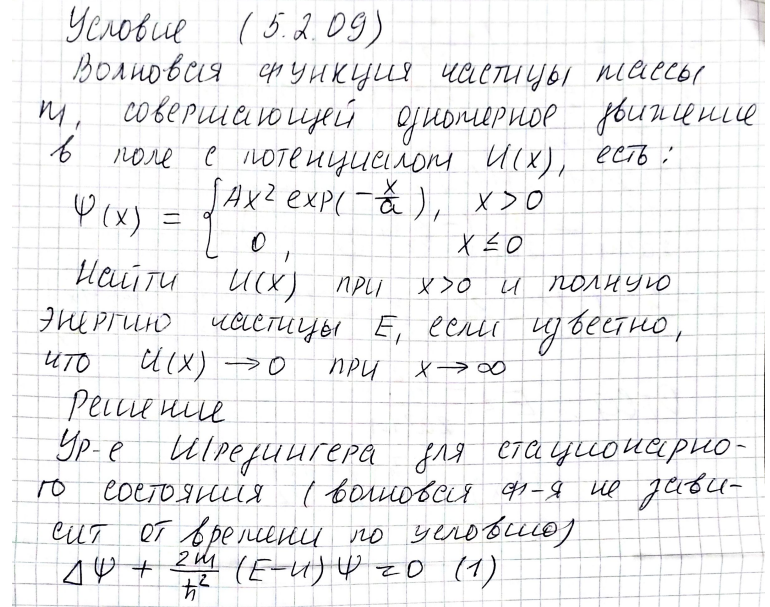 Условие (5.2.09)
Волновая функция частицы массы
m, совершающей одномерное движение
в поле с потенциалом U(x), есть:
Ψ(x) = { Ax² exp(-x/a), x > 0
0, x ≤ 0
Найти U(x) при x>0 и полную
энергию частицы E, если известно,
что U(x) → 0 при x → ∞
Решение
Ур-е Шредингера для стационарно-
го состояния (волновая ф-я не зави-
сит от времени по условию)
ΔΨ + 2m/ħ² (E-U) Ψ = 0 (1)